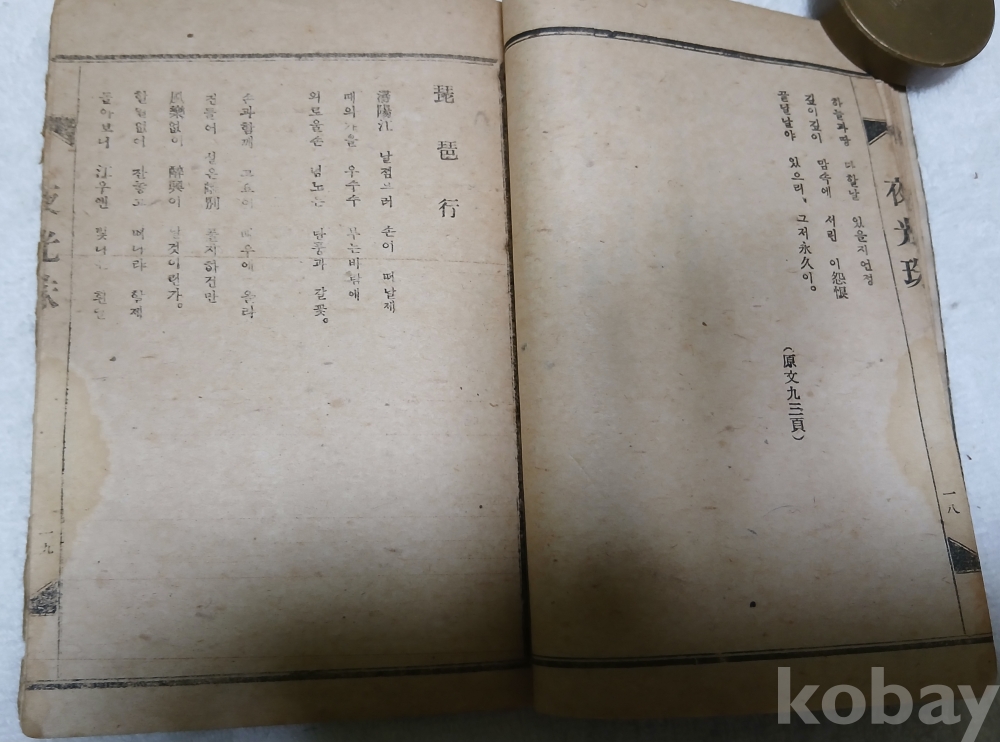 夜光珠
하늘과땅 다할날 있을지언정
깊이깊이 맘속에 서린 이怨恨
끝널날야 있으리, 그저永久이。
(原文九三頁)
一八
琵琶行
潯陽江 날점므러 손이 떠날제
때의가을 우수수 부는바람에
외로울손 넘노는 단풍과 갈꽃。
손과함께 고요히 배우에 올라
잔들어 깊은 하건만
風樂없이 醉興이 날것이런가。
할일없이 잔놓고 떠나랴 할제
돌아보니 江우엔 달
夜光珠
一九
kobay